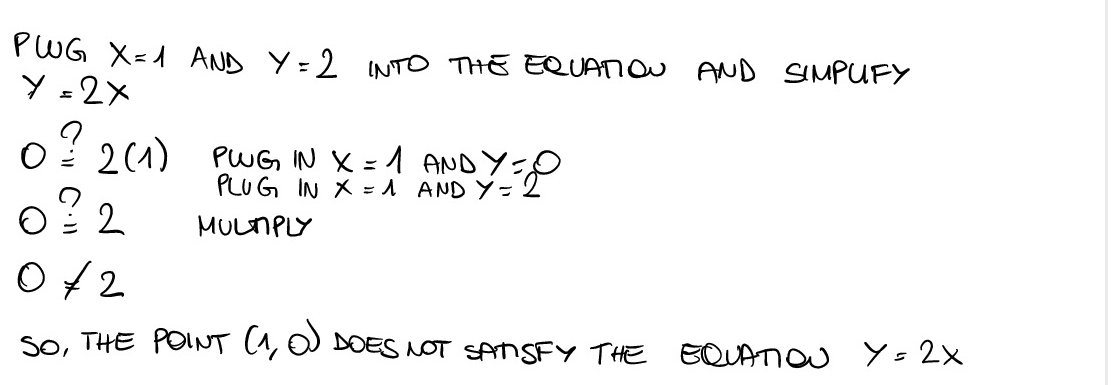 PLUG X=1 AND Y=2 INTO THE EQUATION AND SIMPLIFY
Y=2X
0 ≟ 2(1) PLUG IN X=1 AND Y=0
PLUG IN X=1 AND Y=2
0 ≟ 2 MULTIPLY
0 ≠ 2
SO, THE POINT (1,0) DOES NOT SATISFY THE EQUATION Y=2X